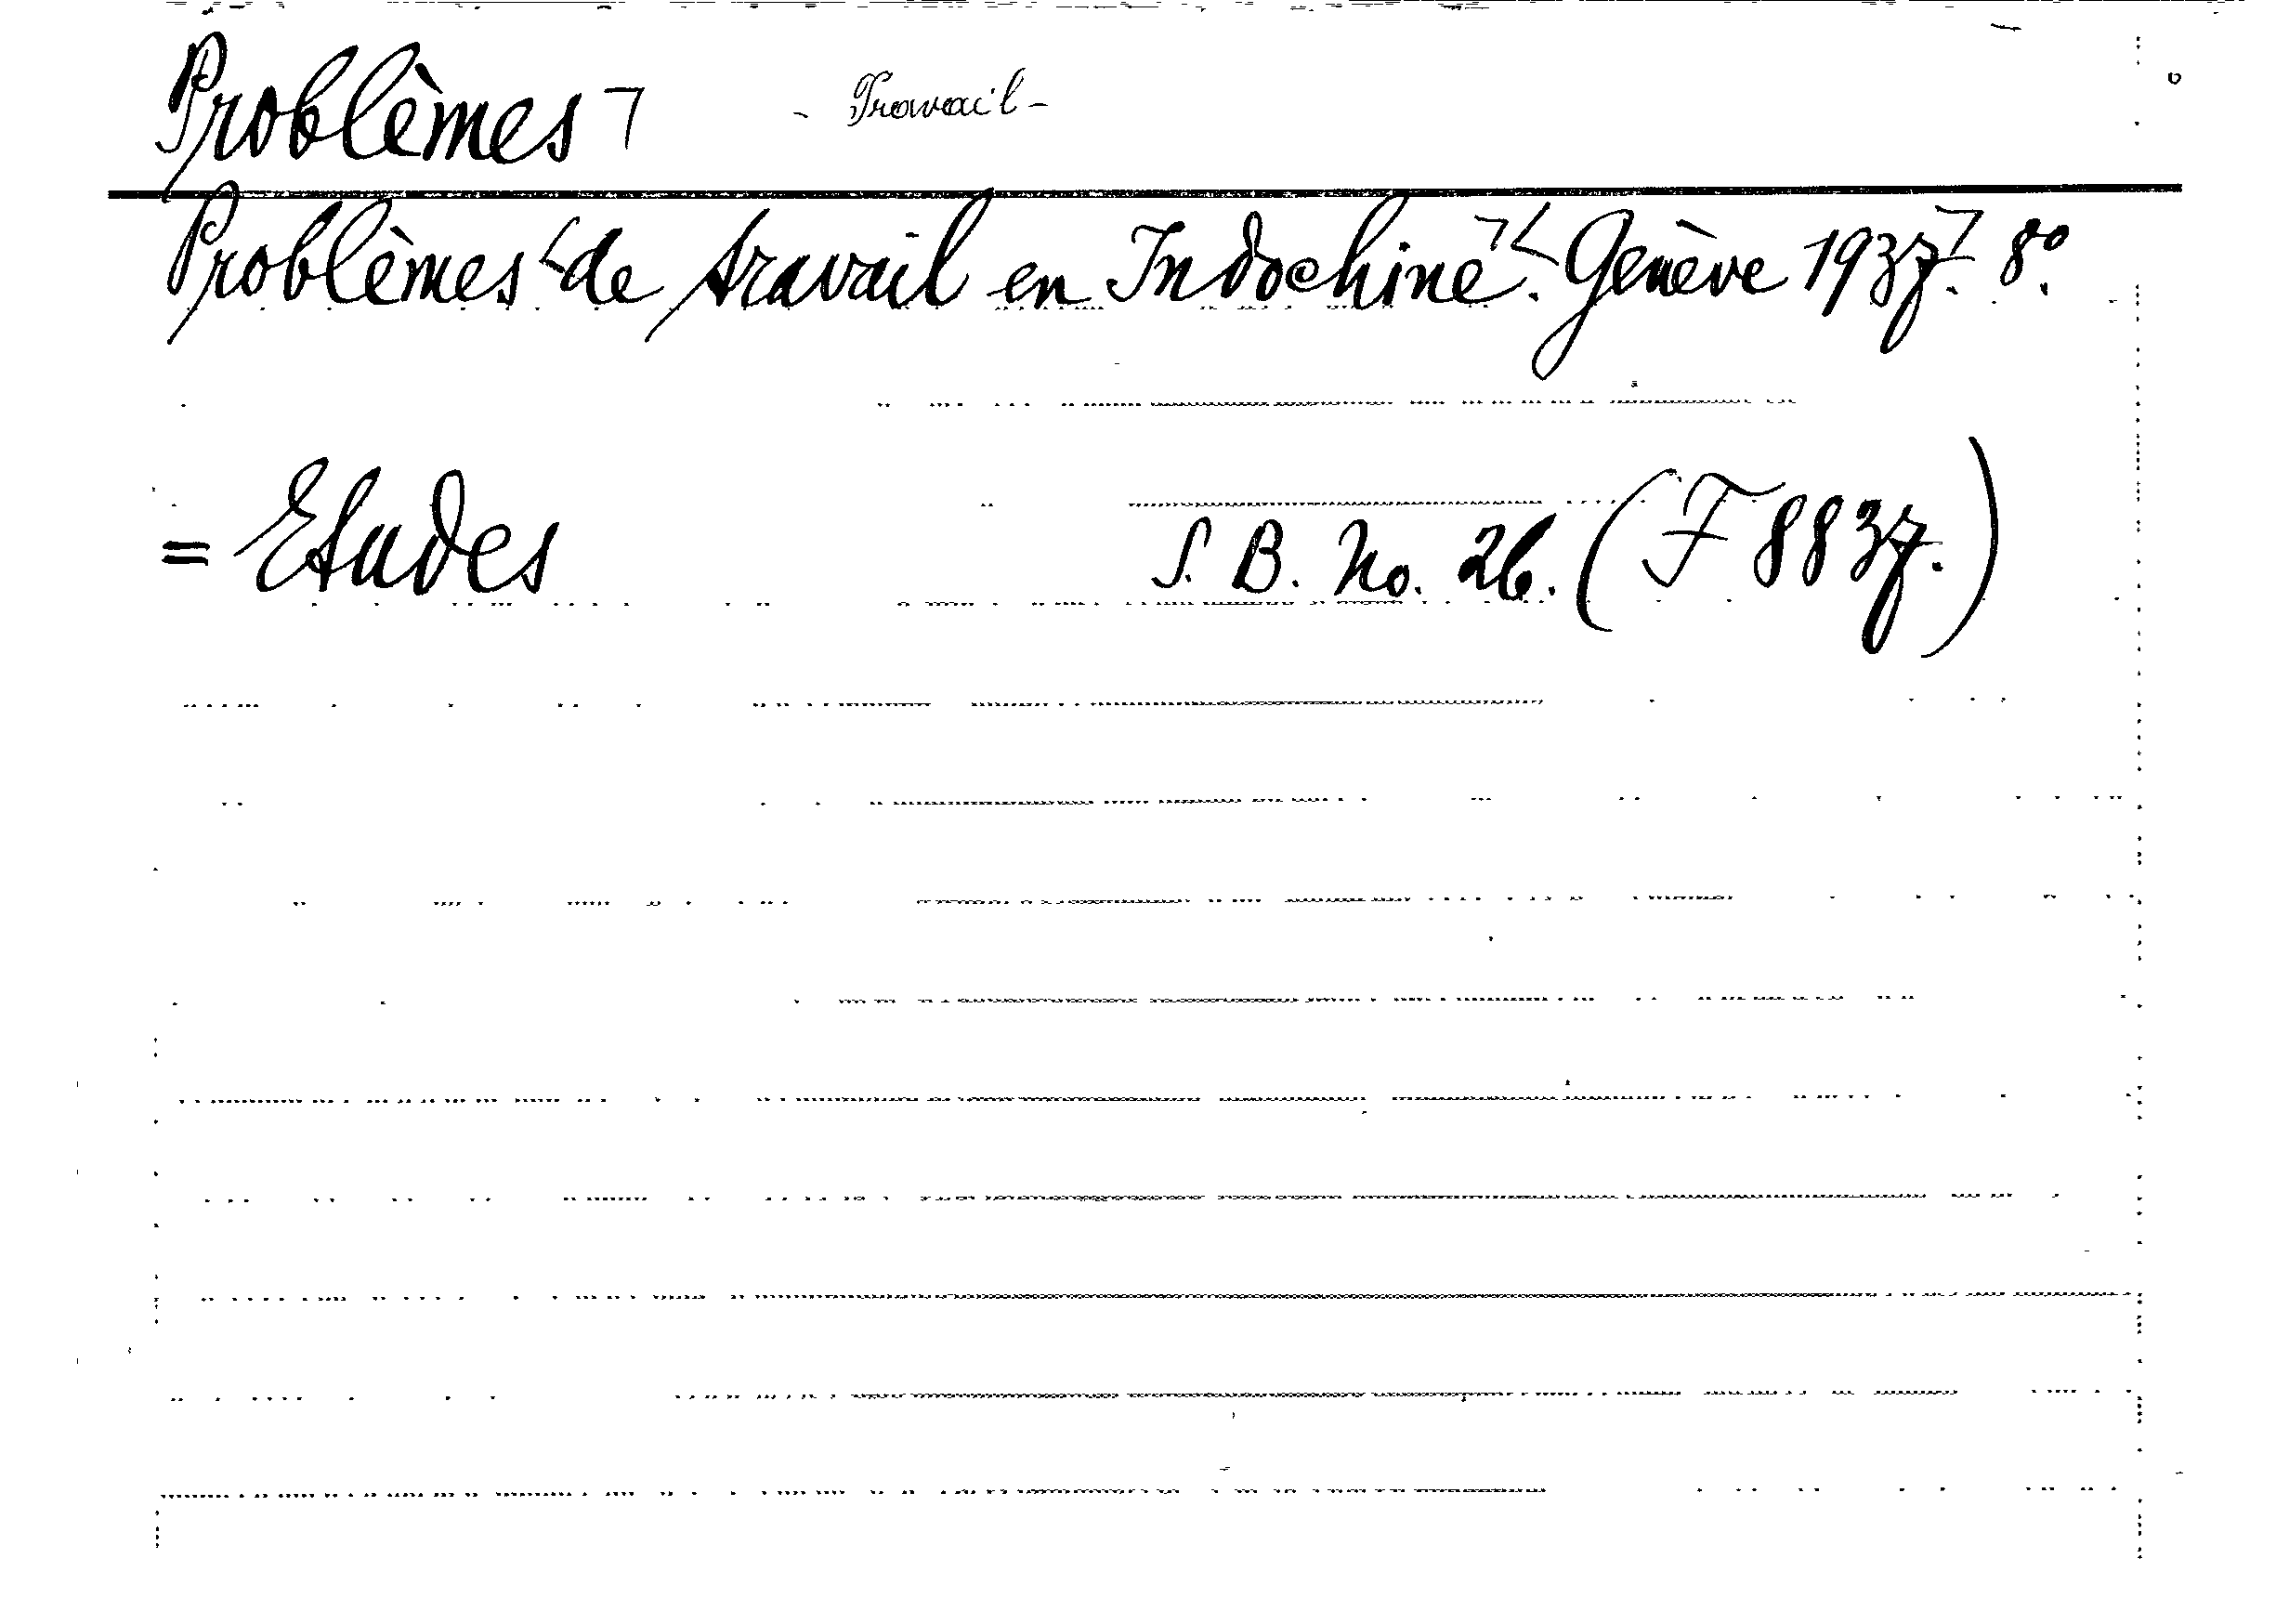 Problèmes ¬ - Travail -
Problèmes de travail en Indochine. Genève 1937. 8°.
= Etudes S. B. No. 26. (F 8837.)